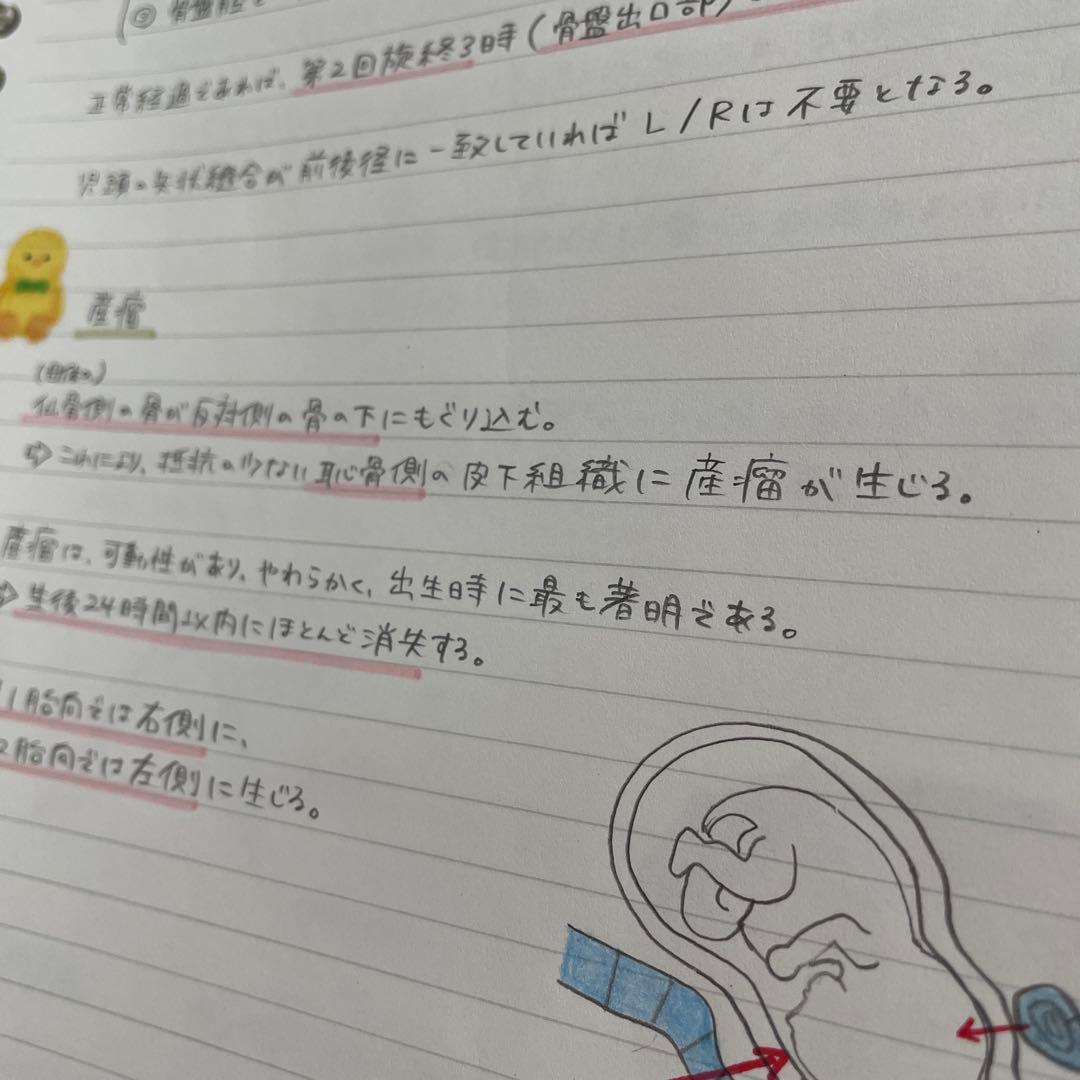 ③ 骨盤
正常経過であれば、第2回旋終了時(骨盤出口部)
児頭の矢状縫合が前後径に一致していればL/Rは不要となる。
産瘤
(母体の)
仙骨側の骨が反対側の骨の下にもぐり込む。
⇨これにより、抵抗の少ない恥骨側の皮下組織に産瘤が生じる。
産瘤は、可動性があり、やわらかく、出生時に最も著明である。
⇨生後24時間以内にほとんど消失する。
1胎向では右側に、
2胎向では左側に生じる。